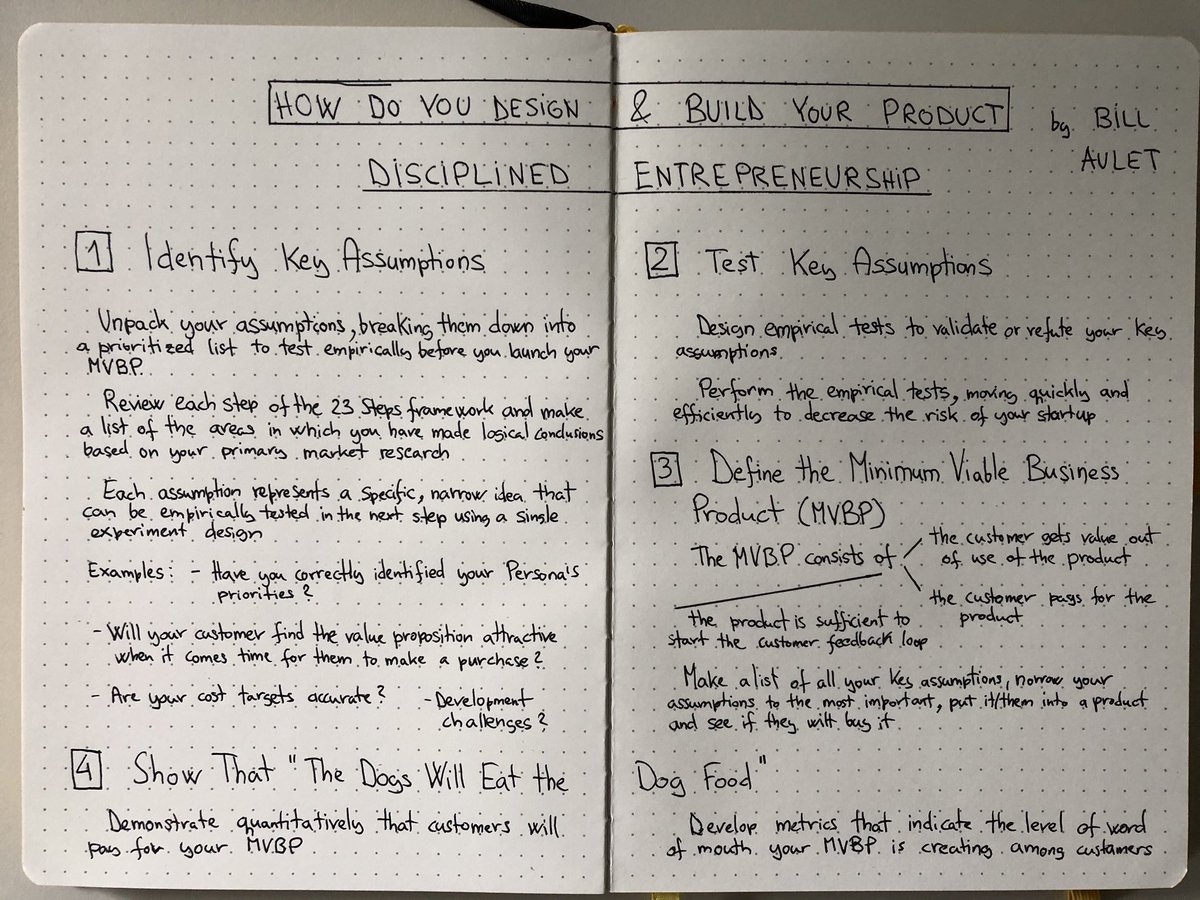 HOW DO YOU DESIGN & BUILD YOUR PRODUCT
by BILL
AULET
DISCIPLINED ENTREPRENEURSHIP
1 Identify Key Assumptions
Unpack your assumptions, breaking them down into
a prioritized list to test empirically before you launch your
MVBP
Review each step of the 23 Steps framework and make
a list of the areas in which you have made logical conclusions
based on your primary market research
Each assumption represents a specific, narrow idea that
can be empirically tested in the next step using a single
experiment design
Examples: - Have you correctly identified your Persona's
priorities?
- Will your customer find the value proposition attractive
when it comes time for them to make a purchase?
- Are your cost targets accurate? - Development
challenges?
2 Test Key Assumptions
Design empirical tests to validate or refute your key
assumptions
Perform the empirical tests, moving quickly and
efficiently to decrease the risk of your startup
3 Define the Minimum Viable Business
Product (MVBP)
The MVBP consists of
the customer gets value out
of use of the product
the customer pays for the
product
the product is sufficient to
start the customer feedback loop
Make a list of all your key assumptions, norrow your
assumptions to the most important, put it/them into a product
and see if they will buy it
4 Show That "The Dogs Will Eat the Dog Food"
Demonstrate quantitatively that customers will
pay for your MVBP
Develop metrics that indicate the level of word
of mouth your MVBP is creating among customers